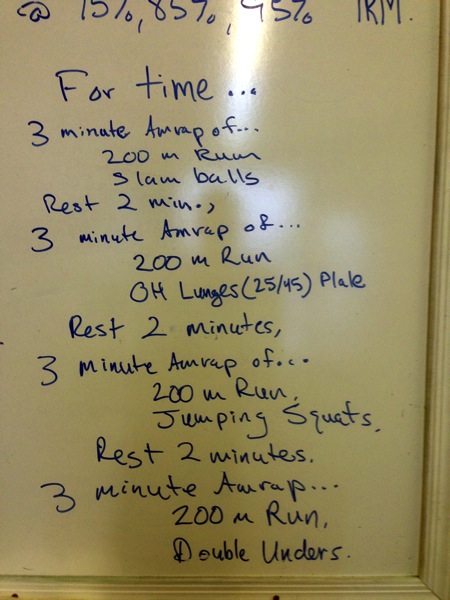 @ 75%, 85%, 95% 1RM.
For time...
3 minute Amrap of...
200 m Run
Slam balls
Rest 2 min.,
3 minute Amrap of...
200 m Run
OH Lunges (25/45) Plate
Rest 2 minutes,
3 minute Amrap of...
200 m Run,
Jumping Squats.
Rest 2 minutes.
3 minute Amrap...
200 m Run,
Double Unders.